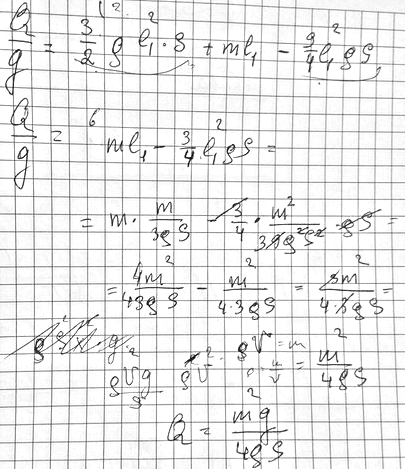 Q/g = 3/2 ρ l₁² · S + ml₁ - 9/4 l₁² ρS
Q/g = ml₁ - 3/4 l₁² ρS =
= m · m/3ρS - 3/4 · m²/3ρ²S² · ρS =
= 4m²/4·3ρS - m²/4·3ρS = 3m²/4·3ρS =
ρV = m
ρVg = m²/4ρS
Q = m²g/4ρS